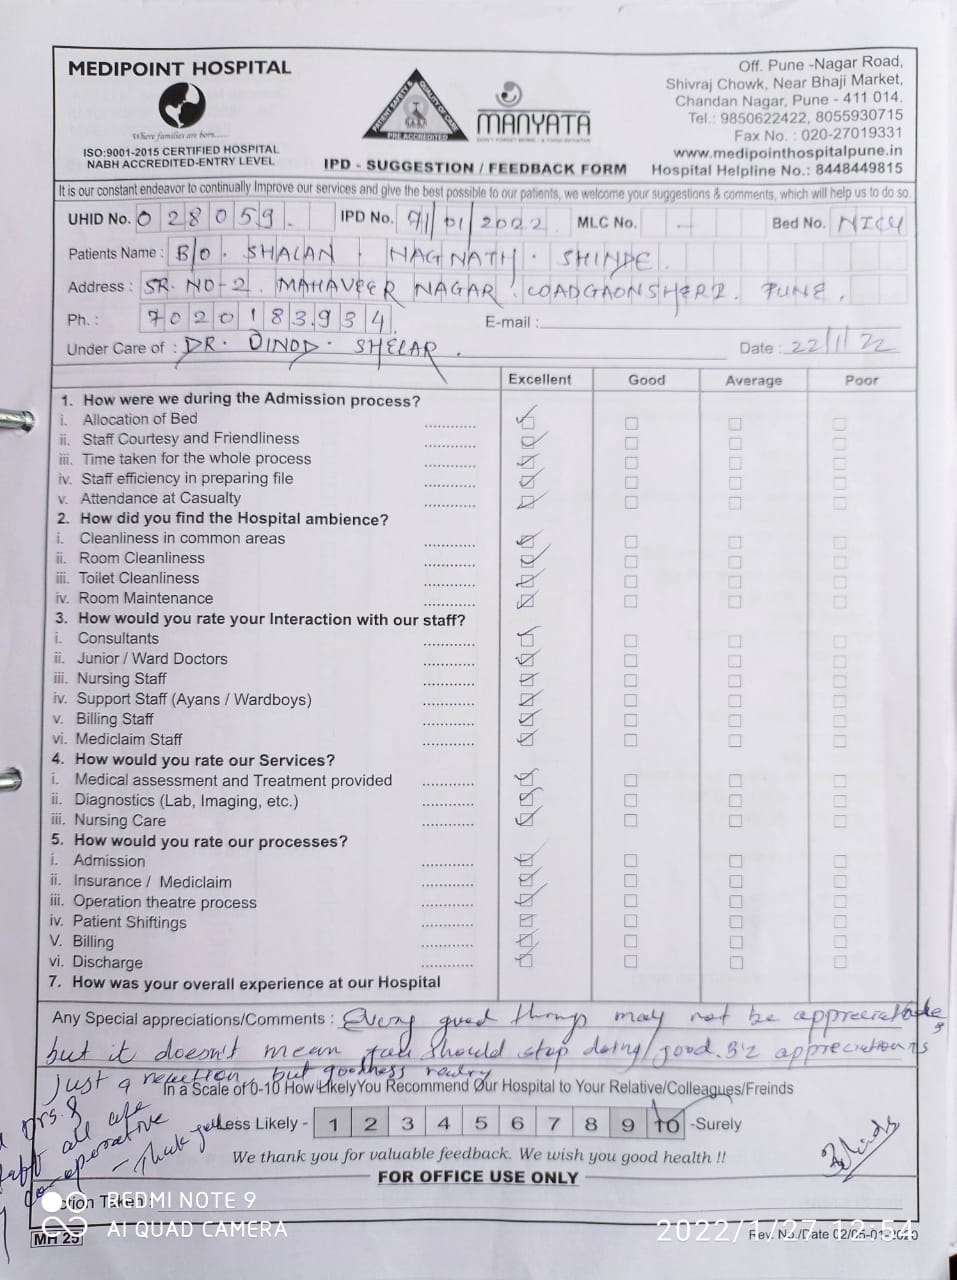 MEDIPOINT HOSPITAL
Where families are born......
ISO:9001-2015 CERTIFIED HOSPITAL
NABH ACCREDITED-ENTRY LEVEL
PATIENT SAFETY & QUALITY OF CARE
PRE ACCREDITED
MANYATA
IPD - SUGGESTION / FEEDBACK FORM
Off. Pune -Nagar Road,
Shivraj Chowk, Near Bhaji Market,
Chandan Nagar, Pune - 411 014.
Tel.: 9850622422, 8055930715
Fax No. : 020-27019331
www.medipointhospitalpune.in
Hospital Helpline No.: 8448449815
It is our constant endeavor to continually Improve our services and give the best possible to our patients, we welcome your suggestions & comments, which will help us to do so.
UHID No. 028059. IPD No. 71/01/2022 MLC No. - Bed No. NICU
Patients Name : B/O. SHALAN NAGNATH. SHINDE.
Address : SR. NO-2. MAHAVEER NAGAR. LOADGAONSHERI. PUNE.
Ph. : 7020183934. E-mail :
Under Care of : DR. VINOD. SHELAR. Date : 22/1/22
Excellent Good Average Poor
1. How were we during the Admission process?
i. Allocation of Bed ............
ii. Staff Courtesy and Friendliness ............
iii. Time taken for the whole process ............
iv. Staff efficiency in preparing file ............
v. Attendance at Casualty ............
2. How did you find the Hospital ambience?
i. Cleanliness in common areas ............
ii. Room Cleanliness ............
iii. Toilet Cleanliness ............
iv. Room Maintenance ............
3. How would you rate your Interaction with our staff?
i. Consultants ............
ii. Junior / Ward Doctors ............
iii. Nursing Staff ............
iv. Support Staff (Ayans / Wardboys) ............
v. Billing Staff ............
vi. Mediclaim Staff ............
4. How would you rate our Services?
i. Medical assessment and Treatment provided ............
ii. Diagnostics (Lab, Imaging, etc.) ............
iii. Nursing Care ............
5. How would you rate our processes?
i. Admission ............
ii. Insurance / Mediclaim ............
iii. Operation theatre process ............
iv. Patient Shiftings ............
V. Billing ............
vi. Discharge ............
7. How was your overall experience at our Hospital
Any Special appreciations/Comments : Every good things may not be appreciatable,
but it doesn't mean you should stop doing good. B'z appreciation is
just a reaction but goodness
In a Scale of 0-10 How Likely You Recommend Our Hospital to Your Relative/Colleagues/Freinds
Drs. &
staff all are
co-operative
- Thank you
Less Likely - 1 2 3 4 5 6 7 8 9 10 -Surely
We thank you for valuable feedback. We wish you good health !!
FOR OFFICE USE ONLY
ction Taken :
REDMI NOTE 9
AI QUAD CAMERA
2022/1/27 12:54
MH 25
Rev. No./Date 02/05-01-2020